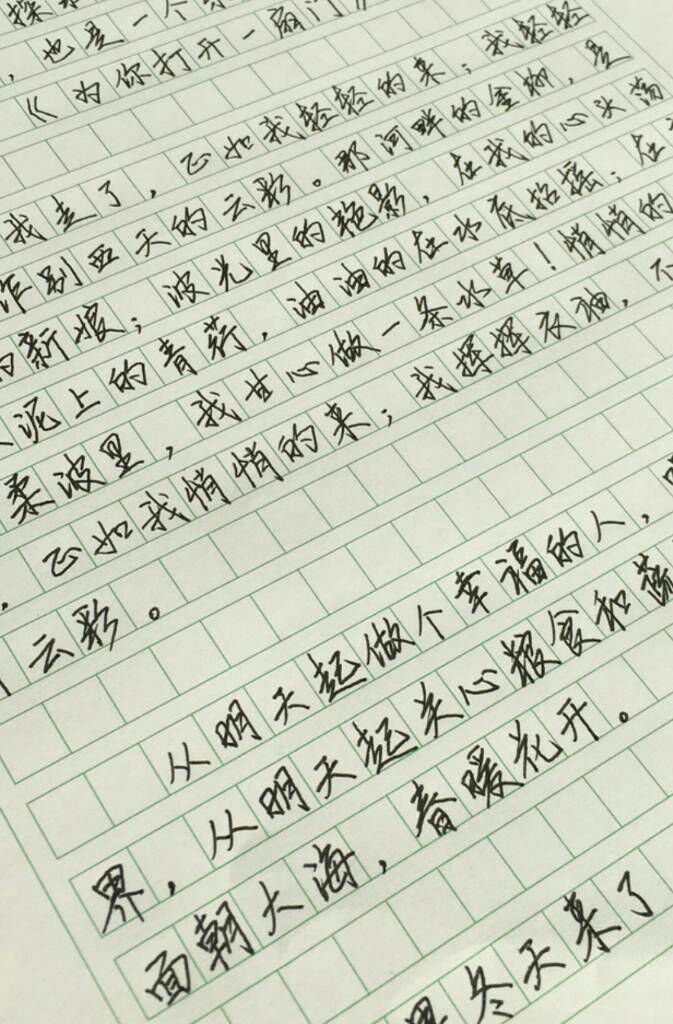 探
，也是一个
《为你打开一扇门》
我走了，正如我轻轻的来；我轻轻
作别西天的云彩。那河畔的金柳，是
的新娘；波光里的艳影，在我的心头荡
泥上的青荇，油油的在水底招摇；在
柔波里，我甘心做一条水草！悄悄的
，正如我悄悄的来；我挥挥衣袖，不
云彩。
从明天起做个幸福的人，
界，从明天起关心粮食和蔬
面朝大海，春暖花开。
冬天来了